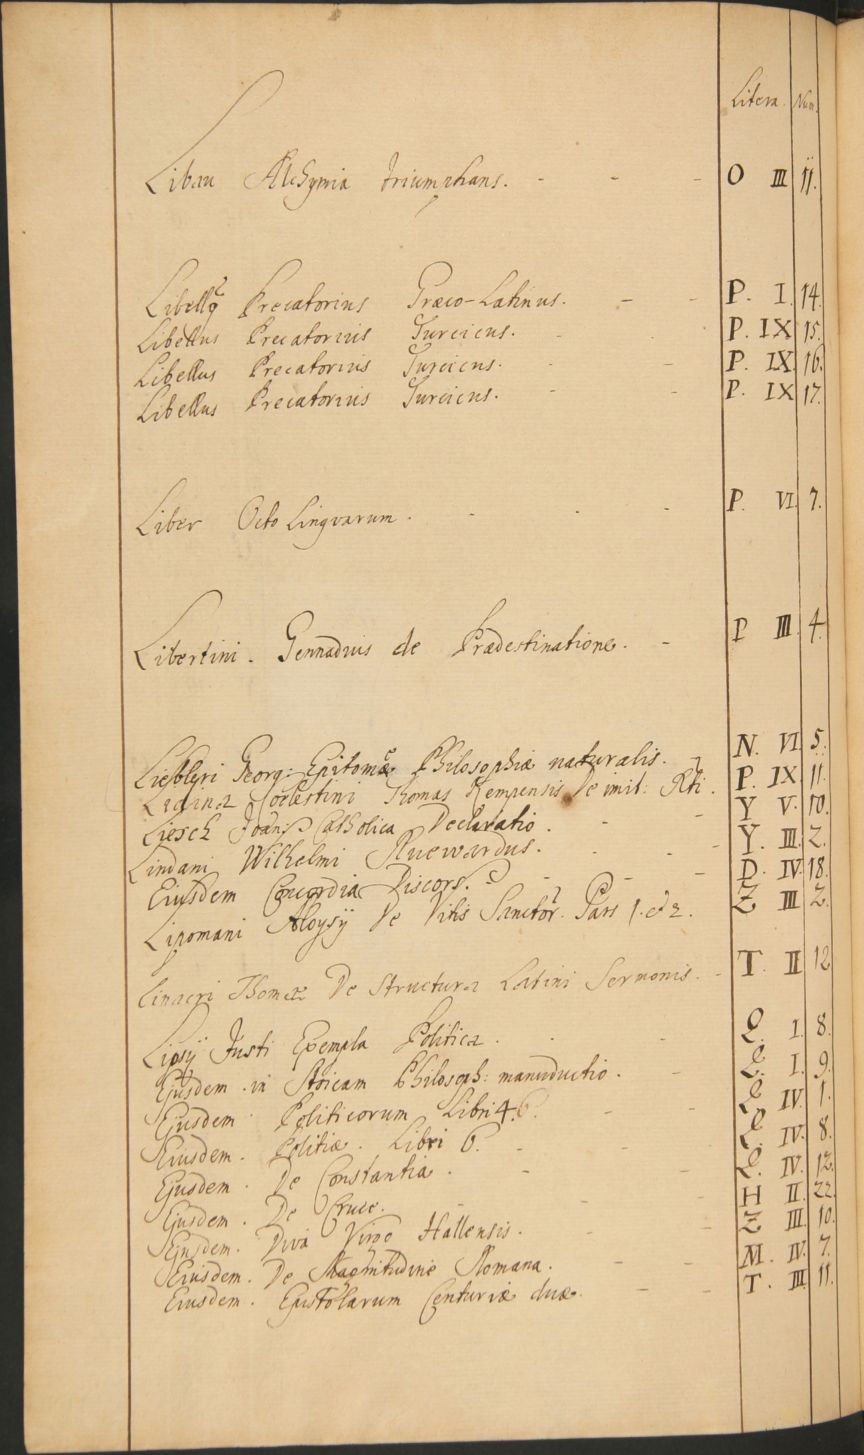 Litera. Num.
Libau Alchymia triumphans. - - - O III 11.
Libellq Precatorius Græco-Latinus. - - P. I. 14.
Libellus Precatorius Turcicus. - P. IX 15.
Libellus Precatorius Turcicus. - - P. IX. 16.
Libellus Precatorius Turcicus. - - P. IX 17.
Liber Octo Lingvarum. - - - P. VI. 7.
Libertini. Gennadius de Prædestinatione. - P III 4.
Liebleri Georg: Epitome Philosophiæ naturalis. N. VI. 5.
Coelestini Thomas Kempensis De imit: P. IX 11.
Liesch Catholica Declaratio. - - Y V. 10.
Lindani Wilhelmi Ruewardus. - - - Y. III. 2.
Eiusdem Concordia Discors. - - - D. IV. 18.
Lipomani Aloysij De Vitis Sanctor. Pars 1. et 2. Z III 2.
Linacri Thomæ De Structura Latini Sermonis. - T II 12
Lipsij Justi Exempla Politica. - - L. I. 8.
Ejusdem in Stoicam Philosoph: manuductio. - L. I. 9.
Ejusdem. Politicorum Libri 4. 6. - - L IV. 1.
Eiusdem. Politiæ. Libri 6. - - - L. IV. 8.
Ejusdem. De Constantia. - - - L. IV. 12.
Ejusdem. De Cruce. - - - H II. 22.
Ejusdem. Diva Virgo Hallensis. - - Z III. 10.
Eiusdem. De Magnitudine Romana. - - M. IV. 7.
Eiusdem. Epistolarum Centuriæ duæ. - - T. III. 11.